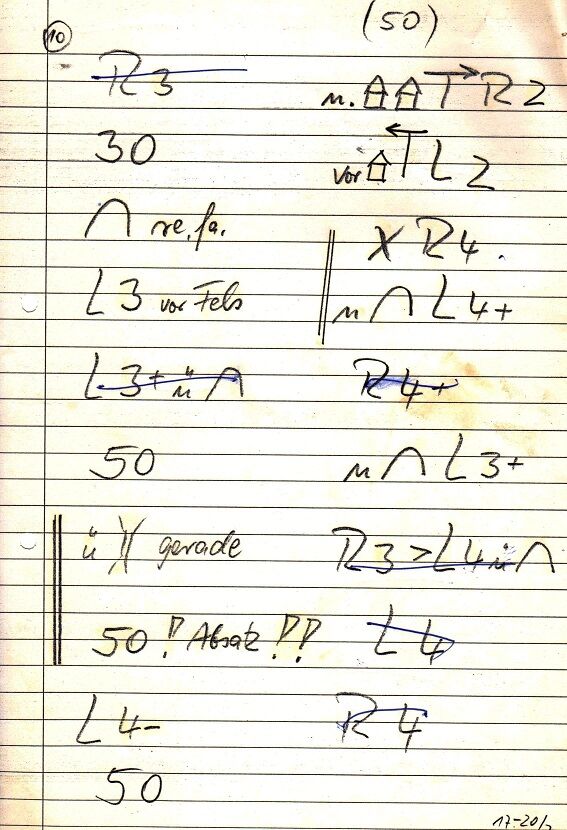 10
R 3
30
∩ re. fa.
L 3 vor Fels
L 3+ ü ∩
50
ü )( gerade
50 ! Absatz !!
L 4-
50
(50)
n. → R 2
vor ← L 2
X R 4.
n ∩ L 4+
R 4+
n ∩ L 3+
R 3 > L 4 ü ∩
L 4
R 4
17-20/2